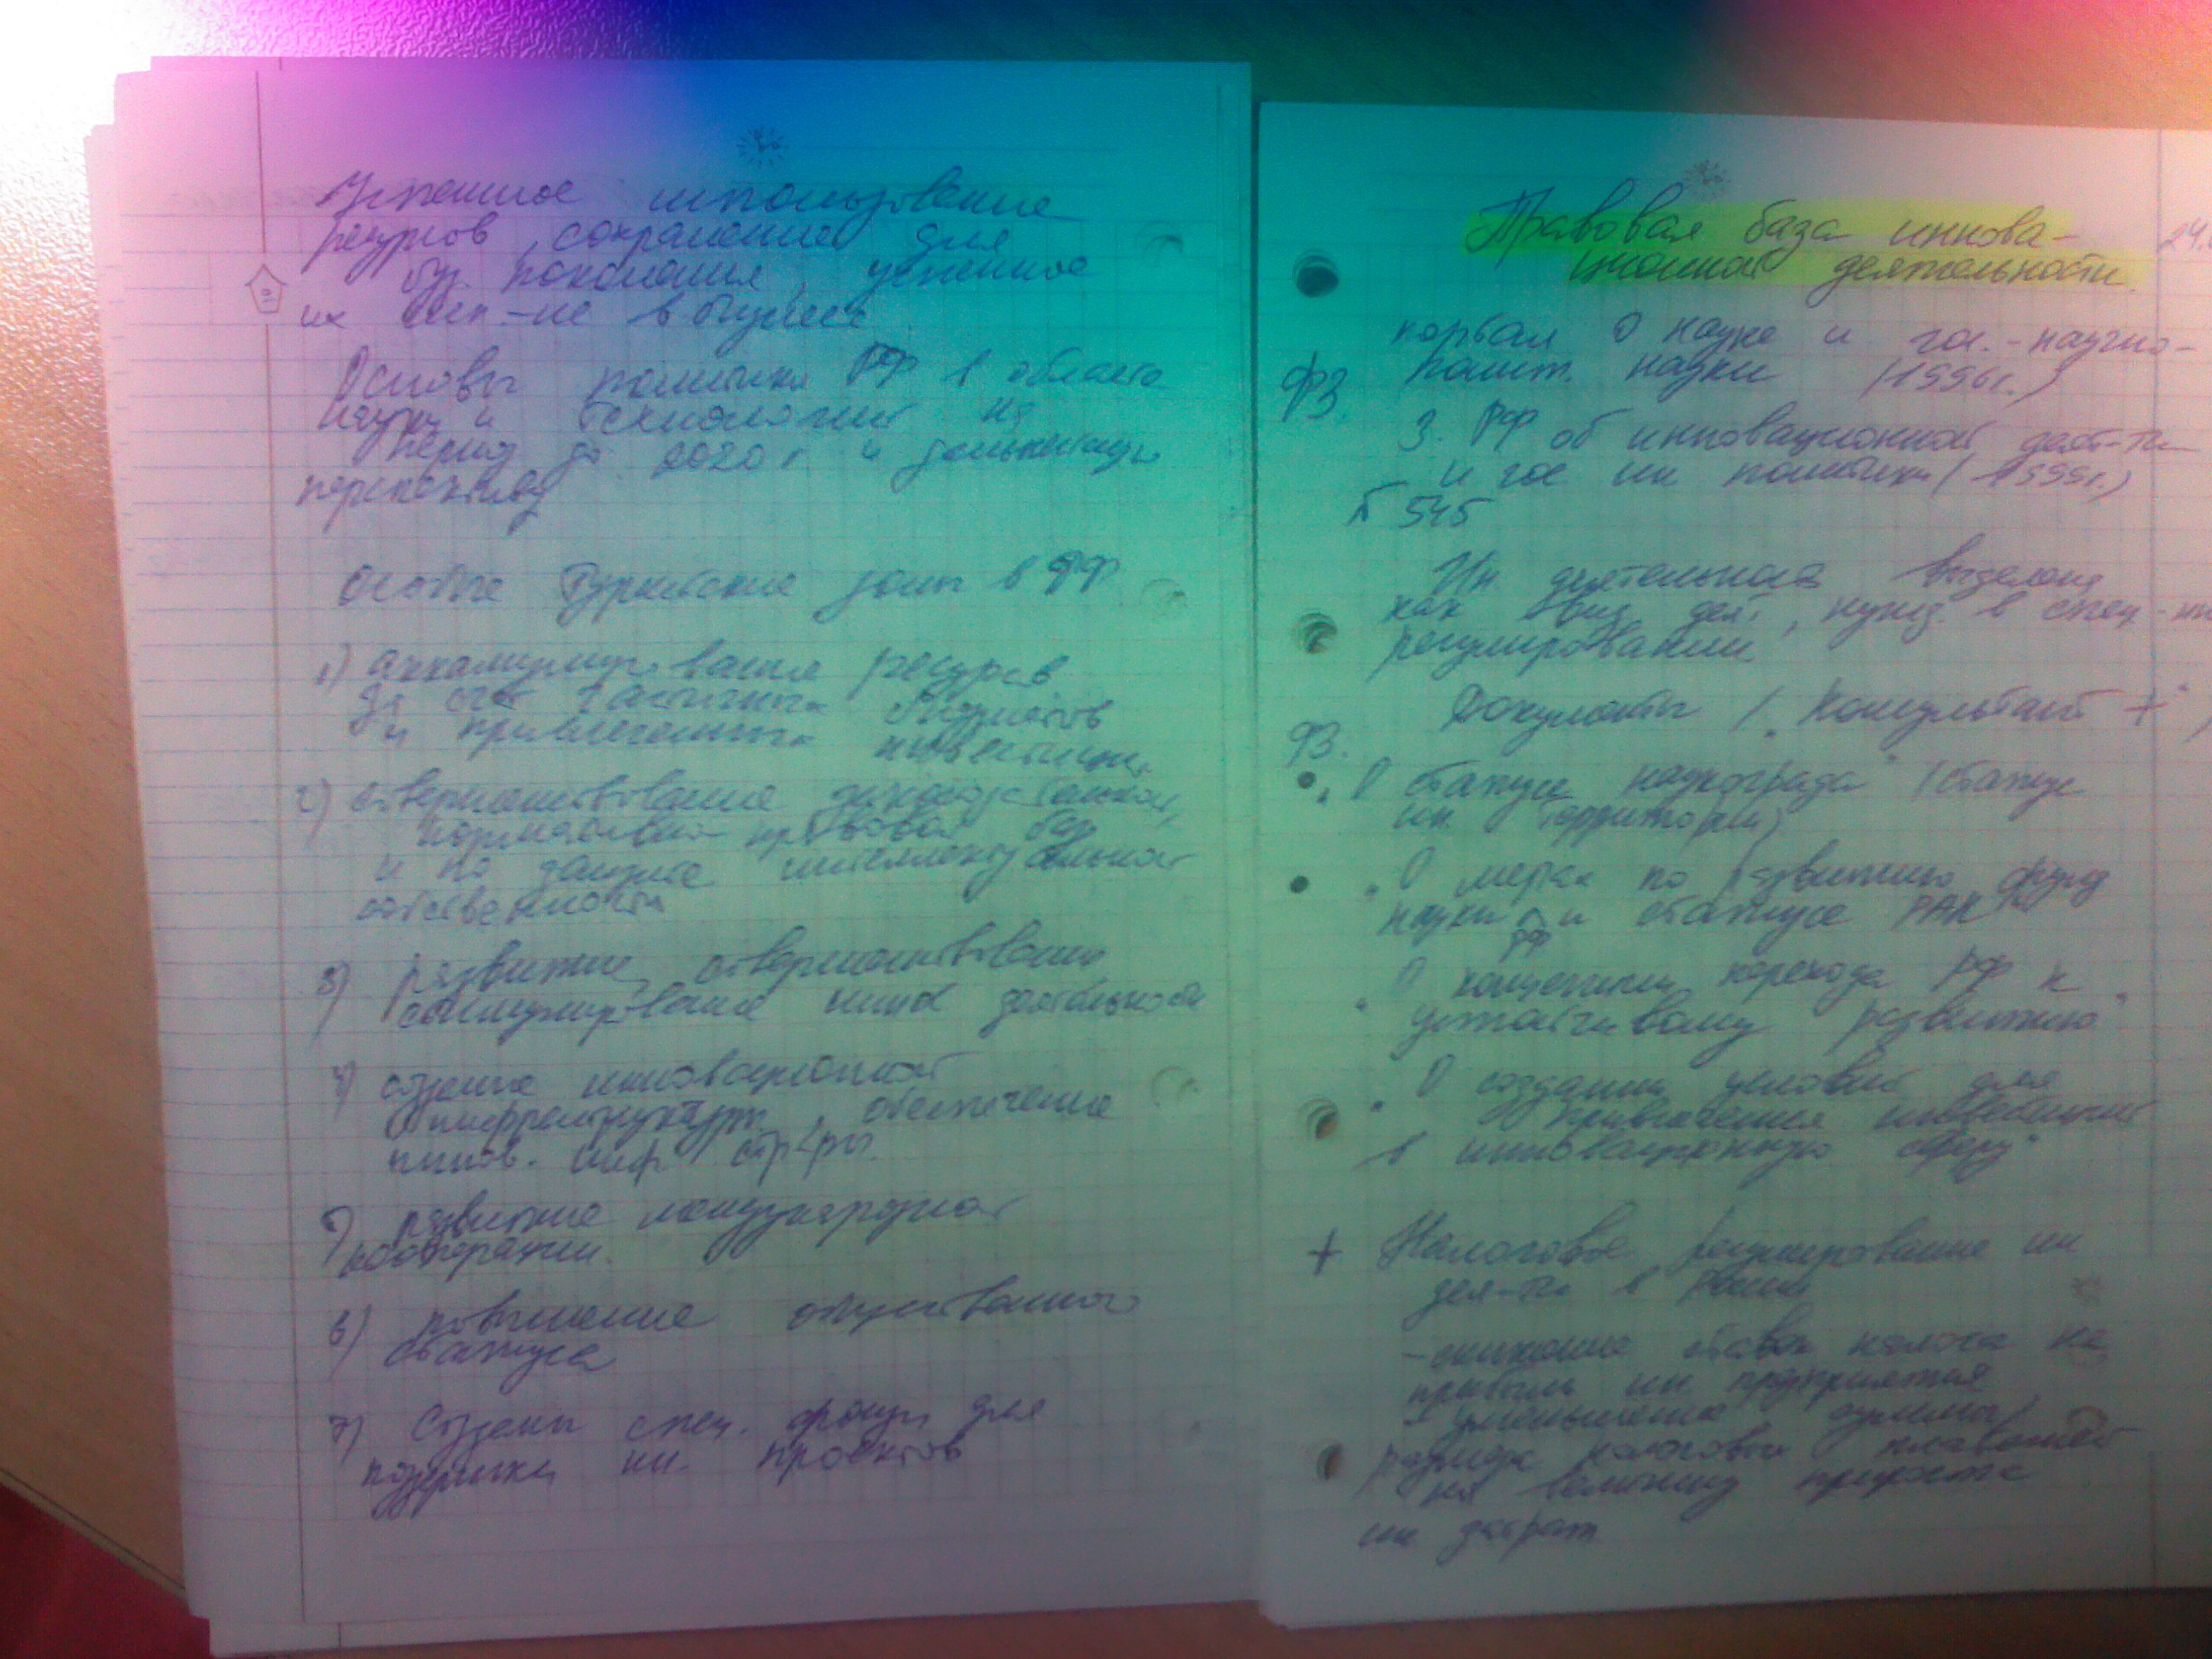 Успешное использование
ресурсов, сохранение для
буд. поколения, успешное
их исп-ие в бизнесе
Основы политики РФ в области
науки и технологий на
период до 2020 г и дальнейшую
перспективу
Особые зоны в РФ
1) аккамулирование ресурсов
за счёт бюджетов
и привлечённых инвестиций
2) совершенствование законодательной,
нормативно правовой базы
и по защите интеллектуальной
собственности
3) развитие, совершенствование
стимулирование деятельности
4) создание инновационной
инфраструктуры, обеспечение
иннов. инф стр-ры.
5) развитие международной
кооперации.
6) повышение общественного
статуса
7) Создание спец. фонды для
поддержки ин. проектов
Правовая база иннова-
ционной деятельности.
24.
О науке и гос. - научно-
ФЗ. полит. науки (1996г.)
З. РФ об инновационной деят-ти
и гос ин политики (1999г.)
545
Ин деятельность выделена
как вид деят, нужд. в спец-
регулировании
Документы / "Консультант +"
ФЗ.
• "О статусе наукограда" (статус
ин. территории)
• "О мерах по развитию фунд
науки в РФ и статусе РАН"
"О концепции перехода РФ к
устойчивому развитию"
"О создании условий для
привлечения инвестиций
в инновационную сферу"
+ Налоговое регулирование ин
дея-ти в России
- снижение ставок налога на
прибыль ин. предприятия
- уменьшение суммы,
размера налоговых
на величину прироста
ин затрат